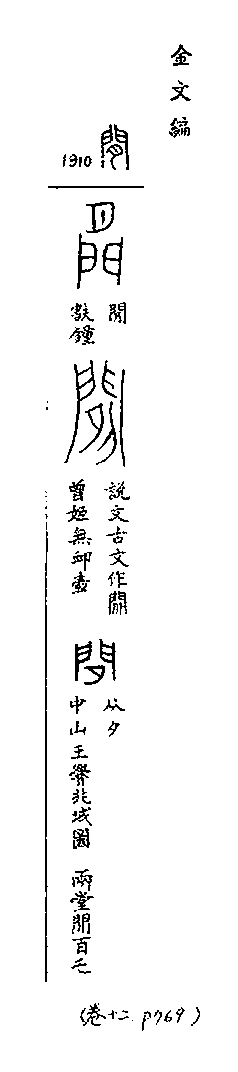 金文編
1910 閒
閒
㝬鍾
説文古文作閒
曾姬無卹壺
从夕
中山王𰯼兆域圖 兩堂閒百乇
(卷十二 p769)